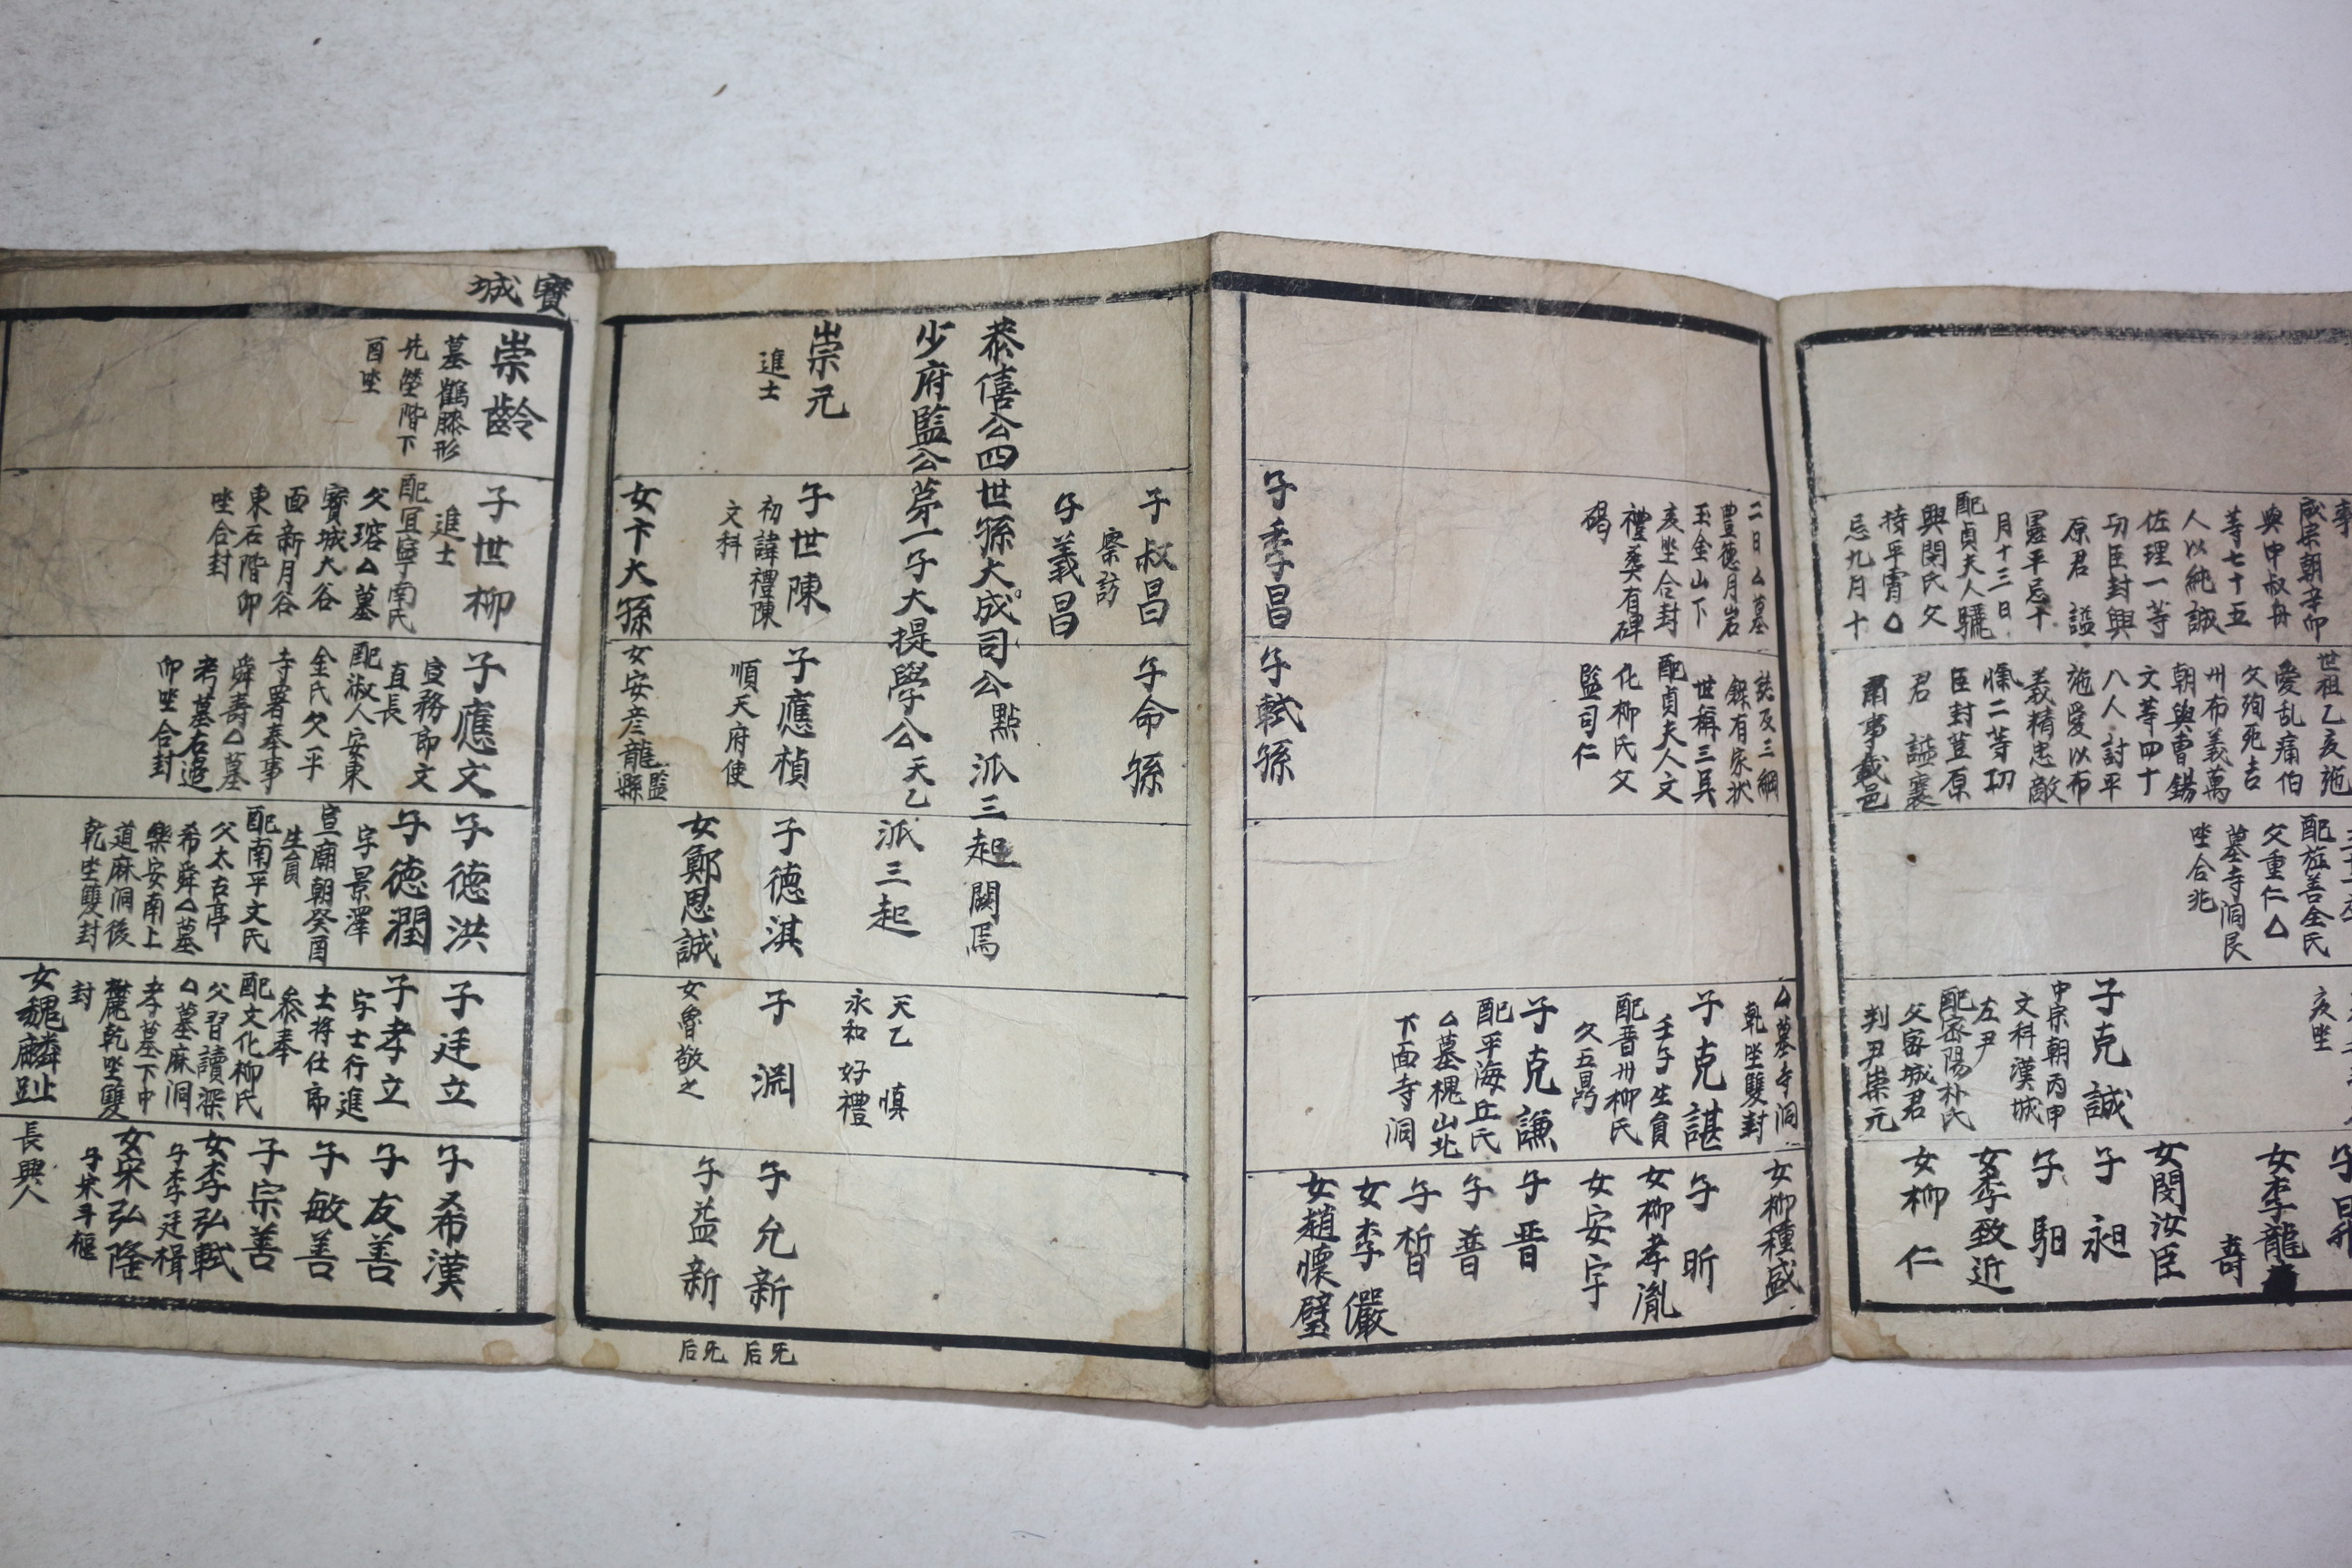 獻宗朝辛卯
與申叔舟
等七十五
人以純誠
佐理一等
功臣封興
原君 諡
景平忌十
月十三日
配貞夫人驪
興閔氏父
持平霄△
忌九月十
世祖乙亥施
愛乱痛伯
父殉死吉
州布義萬
朝與曺錫
文等四十
八人討平
施愛以布
義精忠敵
愾二等功
臣封荳原
君 諡襄
肅事載邑
配旌善全氏
父重仁△
墓寺洞艮
坐合兆
亥坐
子克誠
中宗朝丙申
文科漢城
左尹
配密陽朴氏
父密城君
判尹崇元
女李龍
壽
女閔汝臣
子 昶
子 駰
女李致近
女柳 仁
二日△墓
豊德月岩
玉金山下
亥坐合封
禮葬有碑
碣
子季昌
誌及三綱
錄有家狀
世稱三吳
配貞夫人文
化柳氏父
監司仁
子軾孫
△墓寺洞
乾坐雙封
子克諶
壬午生員
配晋州柳氏
父五昌
子克謙
配平海丘氏
△墓槐山北
下面寺洞
女柳種盛
子 昕
女柳孝胤
女安宇
子 晋
子 普
子 晳
女李 儼
女趙懷璧
子叔昌
察訪
子義昌
子命孫
恭僖公四世孫大成司公點派三起闕焉
少府監公第一子大提學公天乙派三起
崇元
進士
子世陳
初諱禮陳
文科
女卞大孫
子應楨
順天府使
女安彦龍
縣監
子德淇
女鄭思誠
天乙 慎
永和 好禮
子 淵
女魯敬之
子允新
子益新
无后
无后
寶城
崇齡
墓鶴膝形
先塋階下
酉坐
子世柳
進士
配宜寧南氏
父瑢△墓
寶城大谷
面新月谷
東石階卯
坐合封
子應文
宣務郎文
直長
配淑人安東
金氏父平
寺署奉事
舜壽△墓
考墓右邉
卯坐合封
子德洪
子德潤
字景澤
宣廟朝癸酉
生員
配南平文氏
父太古亭
希舜△墓
樂安南上
道麻洞後
乾坐雙封
子廷立
子孝立
字士行進
士將仕郎
叅奉
配文化柳氏
父習讀深
△墓麻洞
考墓下中
麓乾坐雙
封
女魏麟趾
長興人
子希漢
子友善
子敏善
子宗善
女李弘軾
子李廷楫
女宋弘隆
子宋斗樞